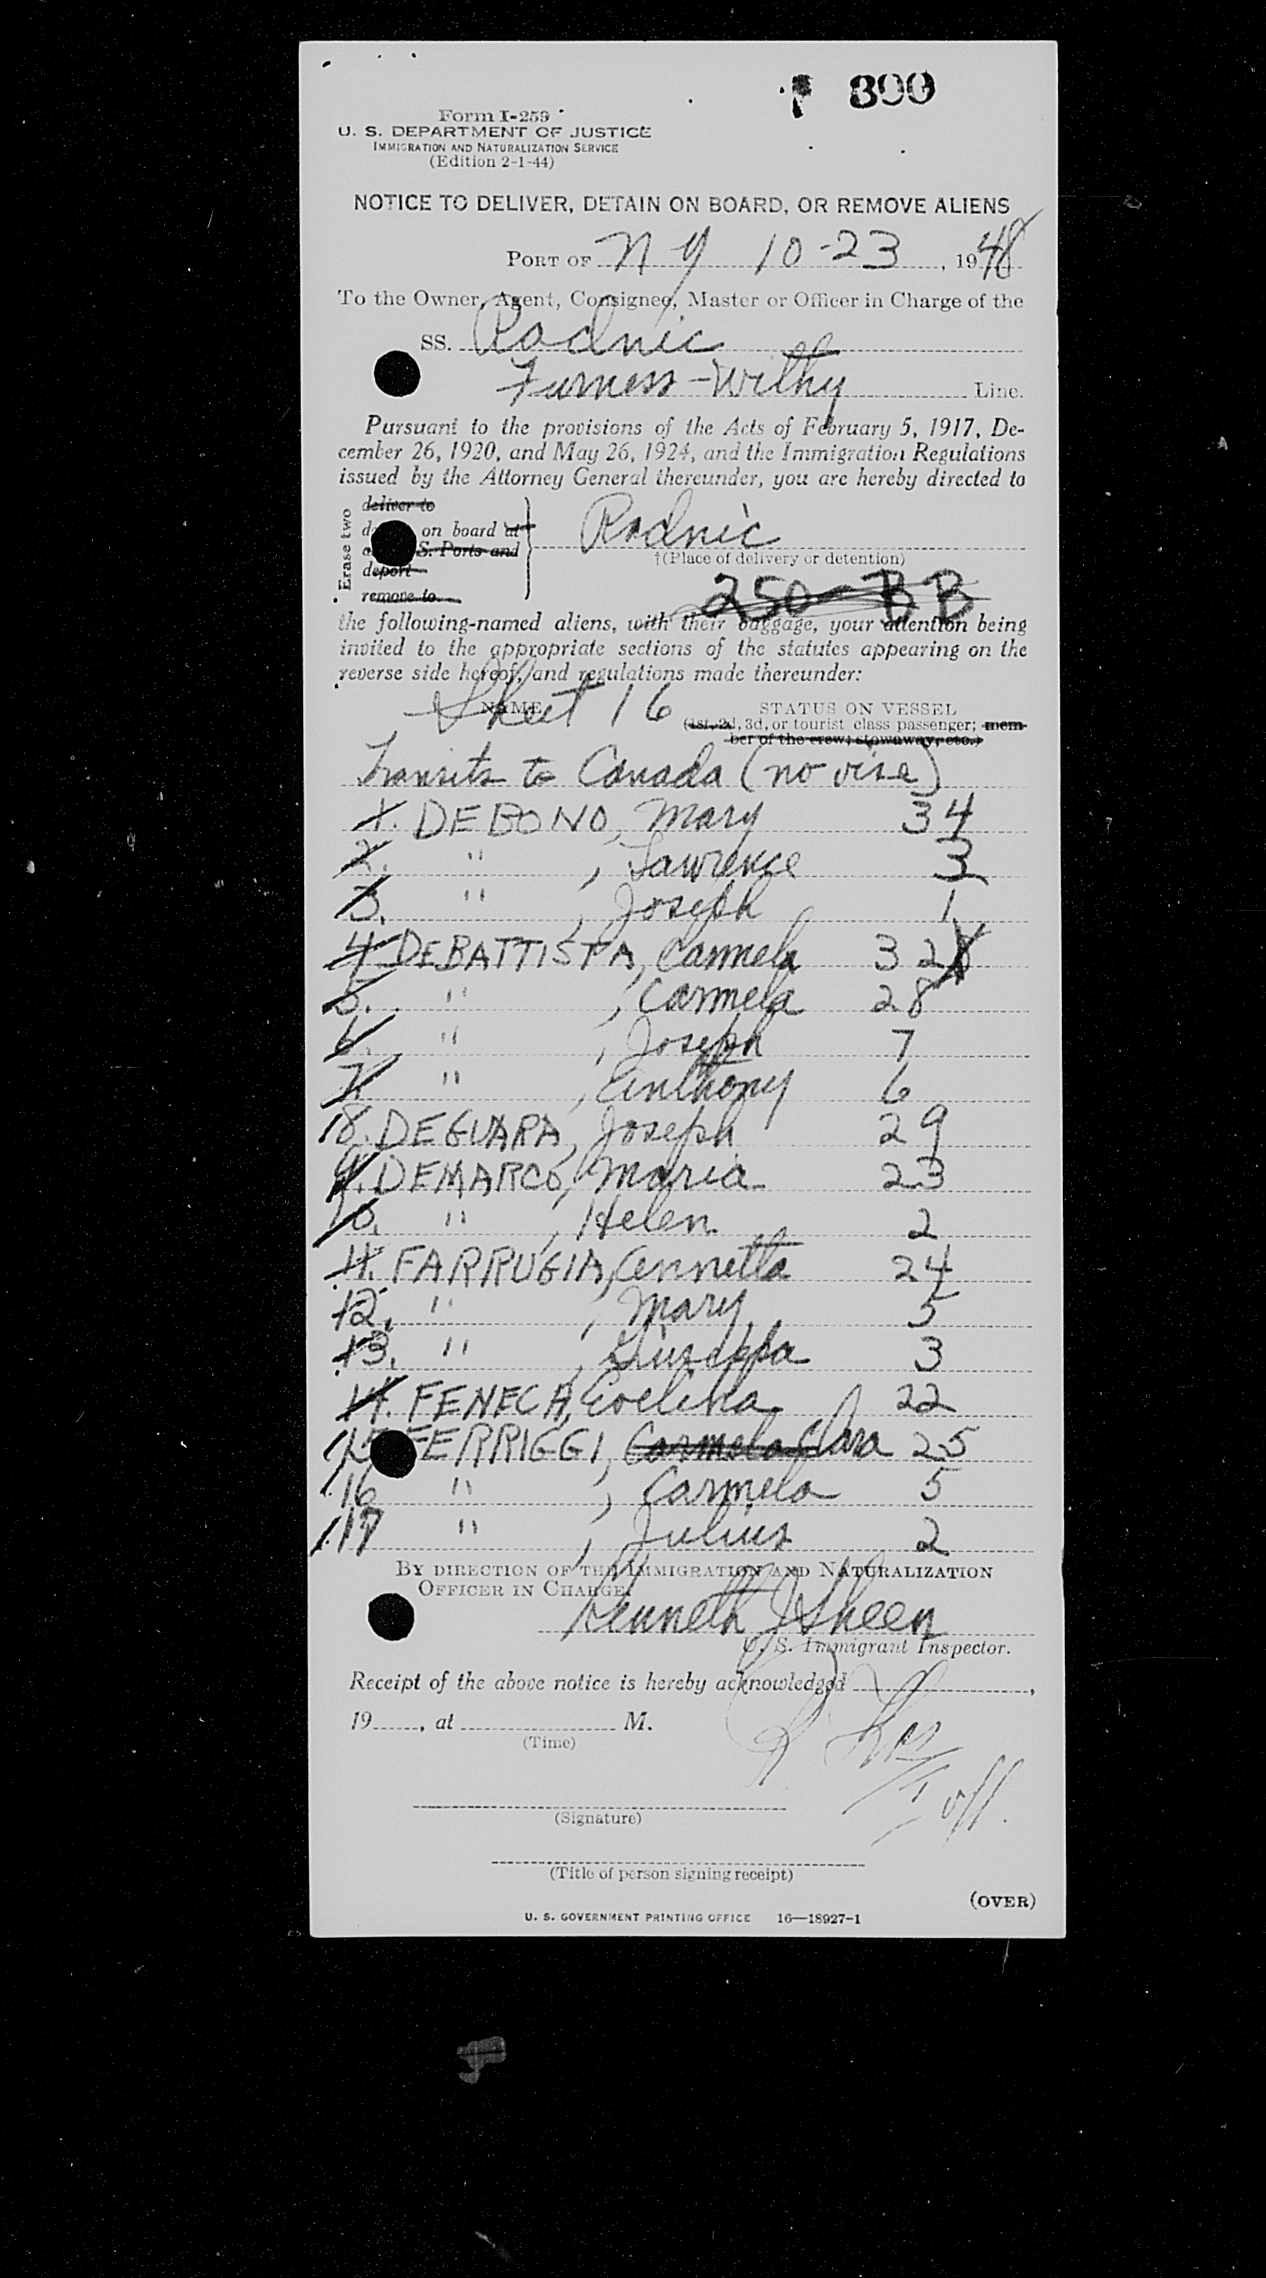 390
Form I-259
U. S. DEPARTMENT OF JUSTICE
IMMIGRATION AND NATURALIZATION SERVICE
(Edition 2-1-44)
NOTICE TO DELIVER, DETAIN ON BOARD, OR REMOVE ALIENS
PORT OF N Y 10-23, 1948
To the Owner, Agent, Consignee, Master or Officer in Charge of the
SS. Radnic
Furness-Withy Line.
Pursuant to the provisions of the Acts of February 5, 1917, De-
cember 26, 1920, and May 26, 1924, and the Immigration Regulations
issued by the Attorney General thereunder, you are hereby directed to
Erase two
deliver to
on board at
S. Ports and
deport
remove to
Radnic
†(Place of delivery or detention)
250-BB
the following-named aliens, with their baggage, your attention being
invited to the appropriate sections of the statutes appearing on the
reverse side hereof, and regulations made thereunder:
Sheet 16
NAME STATUS ON VESSEL
(1st, 2d, 3d, or tourist class passenger; mem-
ber of the crew; stowaway, etc.)
Transits to Canada (no visa)
1. DEBONO, Mary 34
2. " , Lawrence 3
3. " , Joseph 1
4 DEBATTISTA, Carmela 32
5. " , Carmela 28
6. " , Joseph 7
7. " , Anthony 6
8. DEGUARA, Joseph 29
9. DEMARCO, Maria 23
10. " , Helen 2
11. FARRUGIA, Annetta 24
12. " , Mary 5
13. " , Giuseppa 3
14. FENECH, Evelina 22
15 FERRIGGI, Carmela Clara 25
16 " , Carmela 5
17 " , Julius 2
BY DIRECTION OF THE IMMIGRATION AND NATURALIZATION
OFFICER IN CHARGE.
Kenneth J Sheen
U. S. Immigrant Inspector.
Receipt of the above notice is hereby acknowledged ,
19 , at M.
(Time)
off.
(Signature)
(Title of person signing receipt)
(OVER)
U. S. GOVERNMENT PRINTING OFFICE 16—18927-1